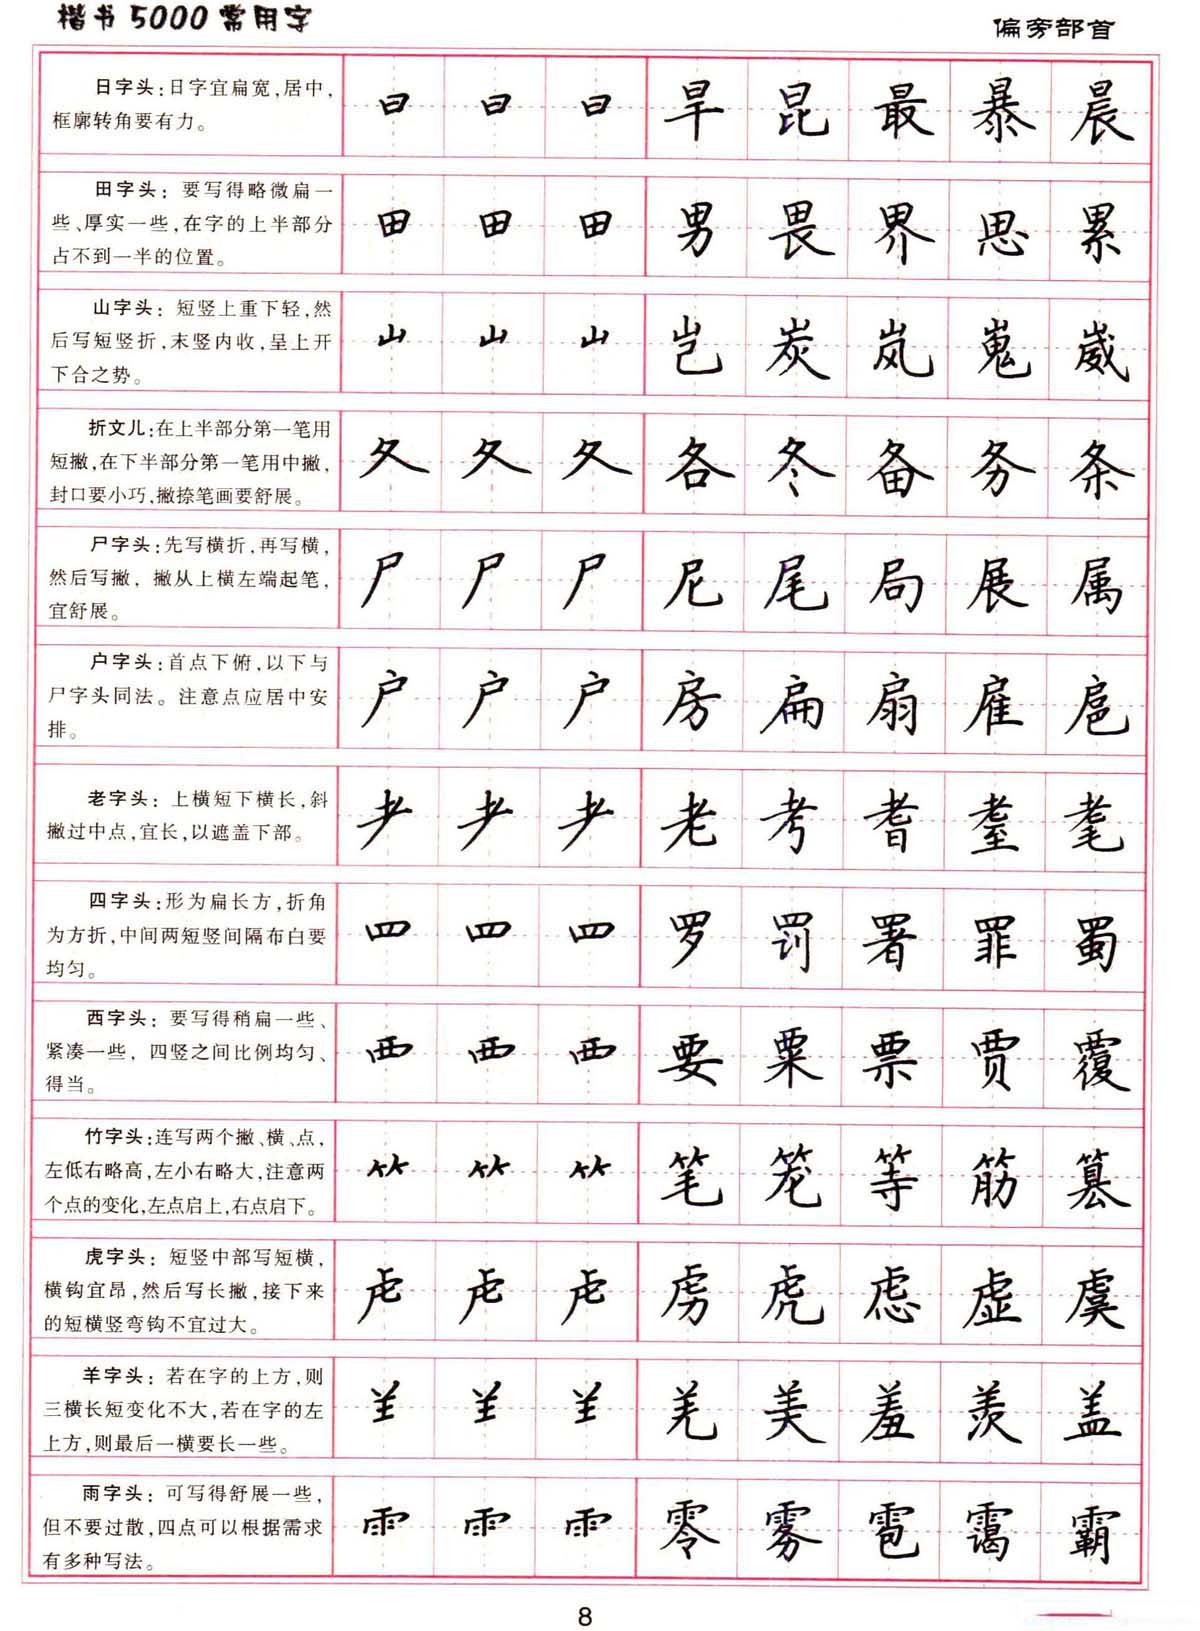 楷书5000常用字
偏旁部首
日字头:日字宜扁宽,居中,
框廓转角要有力。
曰 曰 曰 旱 昆 最 暴 晨
田字头: 要写得略微扁一
些、厚实一些,在字的上半部分
占不到一半的位置。
田 田 田 男 畏 界 思 累
山字头: 短竖上重下轻,然
后写短竖折,末竖内收,呈上开
下合之势。
山 山 山 岂 炭 岚 嵬 崴
折文儿:在上半部分第一笔用
短撇,在下半部分第一笔用中撇,
封口要小巧,撇捺笔画要舒展。
夂 夂 夂 各 冬 备 务 条
尸字头:先写横折,再写横,
然后写撇, 撇从上横左端起笔,
宜舒展。
尸 尸 尸 尼 尾 局 展 属
户字头:首点下俯,以下与
尸字头同法。注意点应居中安
排。
户 户 户 房 扁 扇 雇 扈
老字头: 上横短下横长,斜
撇过中点,宜长,以遮盖下部。
耂 耂 耂 老 考 耆 耋 耄
四字头:形为扁长方,折角
为方折,中间两短竖间隔布白要
均匀。
罒 罒 罒 罗 罚 署 罪 蜀
西字头: 要写得稍扁一些、
紧凑一些, 四竖之间比例均匀、
得当。
覀 覀 覀 要 粟 票 贾 覆
竹字头:连写两个撇、横、点,
左低右略高,左小右略大,注意两
个点的变化,左点启上,右点启下。
⺮ ⺮ ⺮ 笔 笼 等 筋 篡
虎字头: 短竖中部写短横,
横钩宜昂,然后写长撇,接下来
的短横竖弯钩不宜过大。
虍 虍 虍 虏 虎 虑 虚 虞
羊字头: 若在字的上方,则
三横长短变化不大,若在字的左
上方,则最后一横要长一些。
𦍌 𦍌 𦍌 羌 美 羞 羡 盖
雨字头: 可写得舒展一些,
但不要过散,四点可以根据需求
有多种写法。
⻗ ⻗ ⻗ 零 雾 雹 霭 霸
8